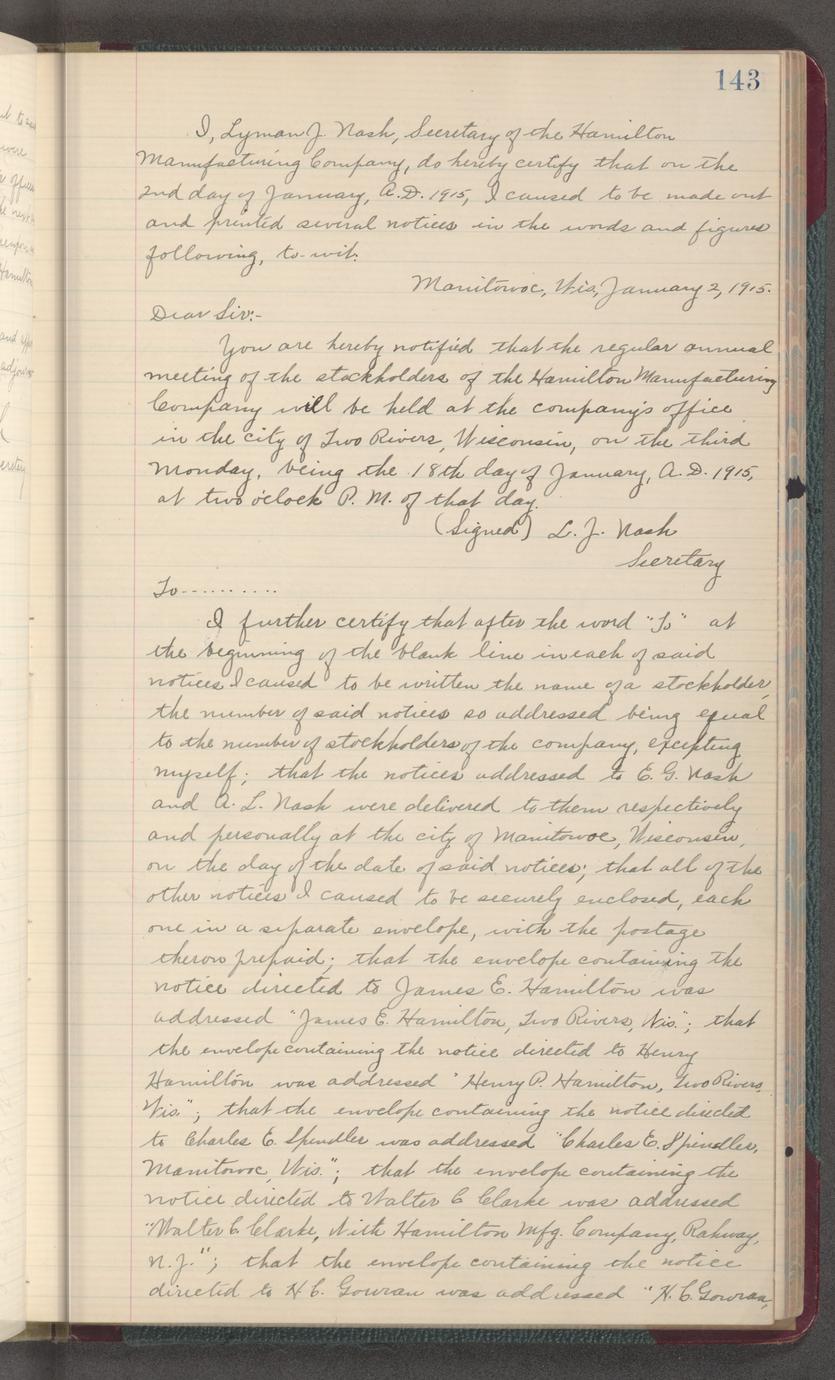 143
I, Lyman J. Nash, Secretary of the Hamilton
Manufacturing Company, do hereby certify that on the
2nd day of January, A.D. 1915, I caused to be made out
and printed several notices in the words and figures
following, to-wit:
Manitowoc, Wis, January 2, 1915.
Dear Sir:-
You are hereby notified that the regular annual
meeting of the stockholders of the Hamilton Manufacturing
Company will be held at the company's office
in the city of Two Rivers, Wisconsin, on the third
Monday, being the 18th day of January, A.D. 1915,
at two o'clock P. M. of that day.
(Signed) L. J. Nash
Secretary
To----------
I further certify that after the word "To" at
the beginning of the blank line in each of said
notices I caused to be written the name of a stockholder,
the number of said notices so addressed being equal
to the number of stockholders of the company, excepting
myself; that the notices addressed to E. G. Nash
and A. L. Nash were delivered to them respectively
and personally at the city of Manitowoc, Wisconsin,
on the day of the date of said notices; that all of the
other notices I caused to be securely enclosed, each
one in a separate envelope, with the postage
theron prepaid; that the envelope containing the
notice directed to James E. Hamilton was
addressed "James E. Hamilton, Two Rivers, Wis."; that
the envelope containing the notice directed to Henry
Hamilton was addressed "Henry P. Hamilton, Two Rivers,
Wis."; that the envelope containing the notice directed
to Charles E. Spindler was addressed "Charles E. Spindler,
Manitowoc Wis."; that the envelope containing the
notice directed to Walter C Clarke was addressed
"Walter C Clarke, With Hamilton Mfg. Company, Rahway,
N.J."; that the envelope containing the notice
directed to H C. Gowran was addressed "H. C. Gowran,